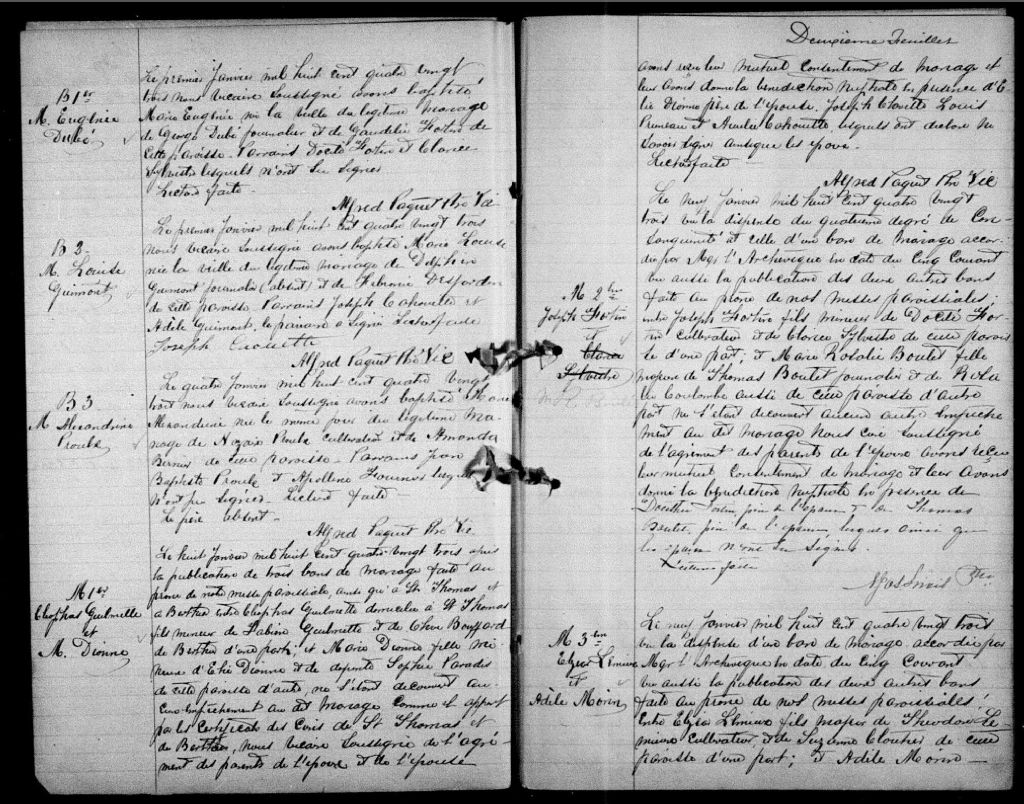 B 1er
M. Eugénie
Dubé
Le premier Janvier mil huit cent quatre vingt
trois nous vicaire soussigné avons baptisé
Marie Eugénie née la veille du légitime mariage
de George Dubé journalier et de Gaudélie Fortin de
cette paroisse. Parrains Docité Fortin et Clarice
Sylvestre lesquels n'ont su signer
Lecture faite.
Alfred Paquet Ptre Vic
B 2
M. Louise
Guimont
Le premier Janvier mil huit cent quatre vingt trois
nous vicaire soussigné avons baptisé Marie Louise
née la veille du légitime mariage de Delphin
Guimont journalier (absent) et de Febronie Desjardins
de cette paroisse Parrains Joseph Cahouette et
Adèle Guimont, le parrain a signé Lecture faite
Joseph Caouette
Alfred Paquet Ptre Vic
B 3
M Alexandrine
Proulx
Le quatre Janvier mil huit cent quatre vingt
trois nous vicaire soussigné avons baptisé Marie
Alexandrine née le même jour du légitime ma-
riage de Nazaire Proulx cultivateur et de Amanda
Bernier de cette paroisse. Parrains Jean
Baptiste Proulx et Apolline Fournier lesquels
n'ont pu signer. Lecture faite
Le père absent.
Alfred Paquet Ptre Vic
M 1er
Cléophas Guilmette
et
M. Dionne
Le huit Janvier mil huit cent quatre vingt trois après
la publication de trois bans de mariage faite au
prône de notre messe paroissiale, ainsi qu'à St. Thomas et
à Berthier entre Cléophas Guilmette domicilié à St Thomas
fils mineur de Fabien Guilmette et de Bouffard
de Berthier d'une part; et Marie Dionne fille mi-
neure d'Elie Dionne et de défunte Sophie Paradis
de cette paroisse d'autre, ne s'étant découvert au-
cun empêchement au dit mariage comme il appert
par les certificats des Curés de St Thomas et
de Berthier, nous Vicaire soussigné de l'agré-
ment des parents de l'époux et de l'épouse
Deuxième Feuillet
avons reçu leur mutuel consentement de mariage et
leur avons donné la bénédiction nuptiale en présence d'E-
lie Dionne père de l'épouse, Joseph Louis
Pruneau et Amélie Cahouette, lesquels ont déclaré ne
savoir signer ainsi que les époux.
Lecture faite
Alfred Paquet Ptre Vic
M 2me
Joseph Fortin
et
Clarice
Sylvestre
Le neuf Janvier mil huit cent quatre vingt
trois vu la dispense du quatrième degré de con-
sanguinité et celle d'un ban de mariage accor-
dée par Mgr l'Archevêque en date du cinq courant
vu aussi la publication des deux autres bans
faite au prône de nos messes paroissiales;
entre Joseph Fortin fils mineur de Docité For-
tin cultivateur et de Clarice Sylvestre de cette parois-
se d'une part; et Marie Rosalie Boutet fille
majeure de Thomas Boutet journalier et de Rosa-
lie Coulombe aussi de cette paroisse d'autre
part ne s'étant découvert aucun autre empêche-
ment au dit mariage Nous curé soussigné
de l'agrément des parents de l'époux avons reçu
leur mutuel consentement de mariage et leur avons
donné la bénédiction nuptiale en présence de
Docithée Fortin père de l'époux et de Thomas
Boutet, père de l'épouse lesquels ainsi que
les époux n'ont su signer.
Lecture faite
Ptre
M 3me
Elzéar Lemieux
et
Adèle Morin
Le neuf Janvier mil huit cent quatre vingt trois
vu la dispense d'un ban de mariage accordée par
Mgr l'Archevêque en date du cinq courant
vu aussi la publication des deux autres bans
faite au prône de nos messes paroissiales
Entre Elzéar Lemieux fils majeur de Théodore Le-
mieux cultivateur, et de Suzanne Cloutier de cette
paroisse d'une part; et Adèle Morin